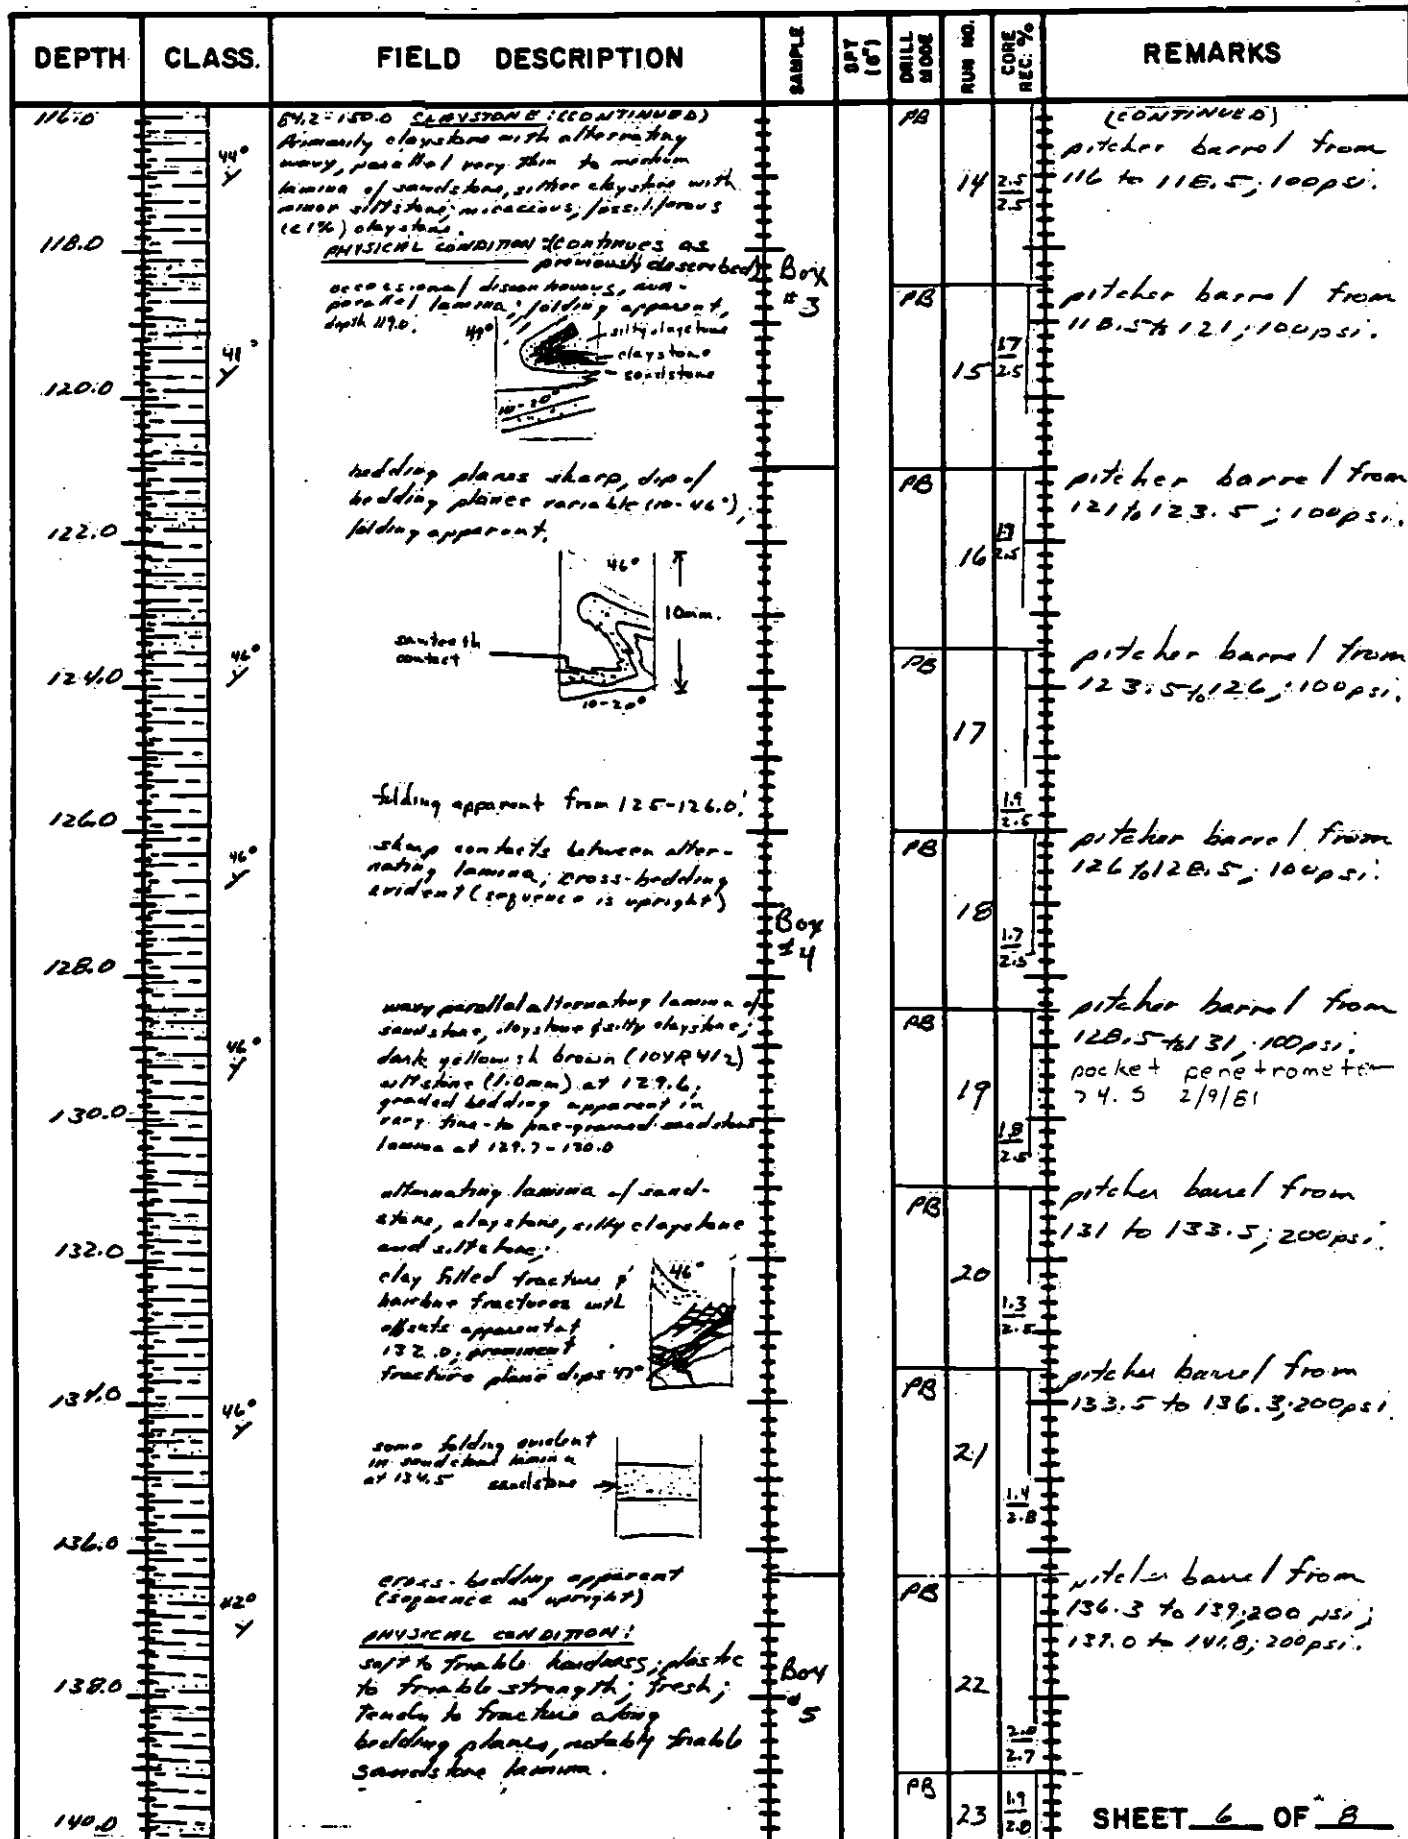 DEPTH CLASS. FIELD DESCRIPTION SAMPLE SPT (6") DRILL MODE RUN NO. CORE REC. % REMARKS
116.0
118.0
120.0
122.0
124.0
126.0
128.0
130.0
132.0
134.0
136.0
138.0
140.0
44°
41°
46°
46°
46°
46°
42°
84.2-150.0 CLAYSTONE: (CONTINUED)
Primarily claystone with alternating
wavy, parallel very thin to medium
lamina of sandstone, silty claystone with
minor siltstone; micaceous, fossiliferous
(<1%) claystone.
PHYSICAL CONDITION (continues as
previously described)
occassional discontinuous, non-
parallel lamina; folding apparent,
depth 119.0.
49°
silty claystone
claystone
sandstone
10-20°
bedding planes sharp, dip of
bedding planes variable (10-46°),
folding apparent.
46°
10mm.
sawtooth
contact
10-20°
folding apparent from 125-126.0'
sharp contacts between alter-
nating lamina; cross-bedding
evident (sequence is upright)
wavy parallel alternating lamina of
sandstone, claystone & silty claystone;
dark yellowish brown (10YR 4/2)
siltstone (1.0mm) at 129.6;
graded bedding apparent in
very fine- to fine-grained sandstone
lamina at 129.7-130.0
alternating lamina of sand-
stone, claystone, silty claystone
and siltstone;
clay filled fracture &
hairline fractures with
offsets apparent at
132.0; prominent
fracture plane dips 47°
46°
some folding evident
in sandstone lamina
at 134.5 sandstone
cross-bedding apparent
(sequence is upright)
PHYSICAL CONDITION:
soft to friable hardness; plastic
to friable strength; fresh;
tends to fracture along
bedding planes, notably friable
sandstone lamina.
Box
#3
Box
#4
Box
#5
PB 14 2.5/2.5
PB 15 1.7/2.5
PB 16 2.5
PB 17 1.9/2.5
PB 18 1.7/2.5
PB 19 1.8/2.5
PB 20 1.3/2.5
PB 21 1.4/2.8
PB 22 2.0/2.7
PB 23 1.9/2.0
(CONTINUED)
pitcher barrel from
116 to 118.5; 100psi.
pitcher barrel from
118.5 to 121; 100psi.
pitcher barrel from
121 to 123.5; 100psi.
pitcher barrel from
123.5 to 126; 100psi.
pitcher barrel from
126 to 128.5; 100psi.
pitcher barrel from
128.5 to 131; 100psi.
pocket penetrometer
>4.5 2/9/81
pitcher barrel from
131 to 133.5; 200psi.
pitcher barrel from
133.5 to 136.3; 200psi
pitcher barrel from
136.3 to 139; 200 psi;
139.0 to 141.8; 200psi.
SHEET 6 OF 8